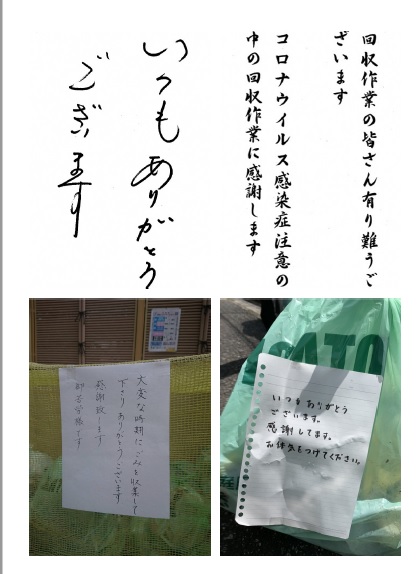 回収作業の皆さん有り難うご
ざいます
コロナウイルス感染症注意の
中の回収作業に感謝します
いつもありがとう
ございます
大変な時期にごみを収集して
下さりありがとうございます
感謝致します
御苦労様です
いつもありがとう
ございます。
感謝してます。
お体気をつけてください。